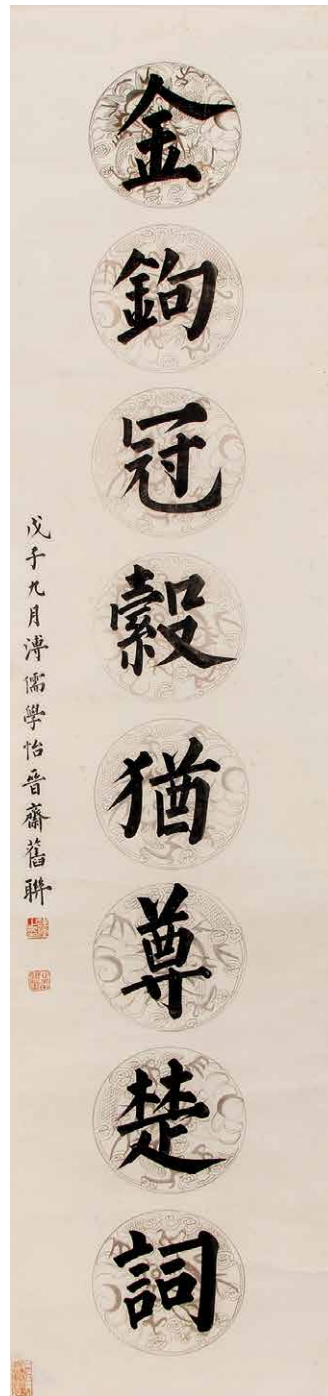 金鉤冠縠猶尊楚詞
戊子九月溥儒學怡晉齋舊聯